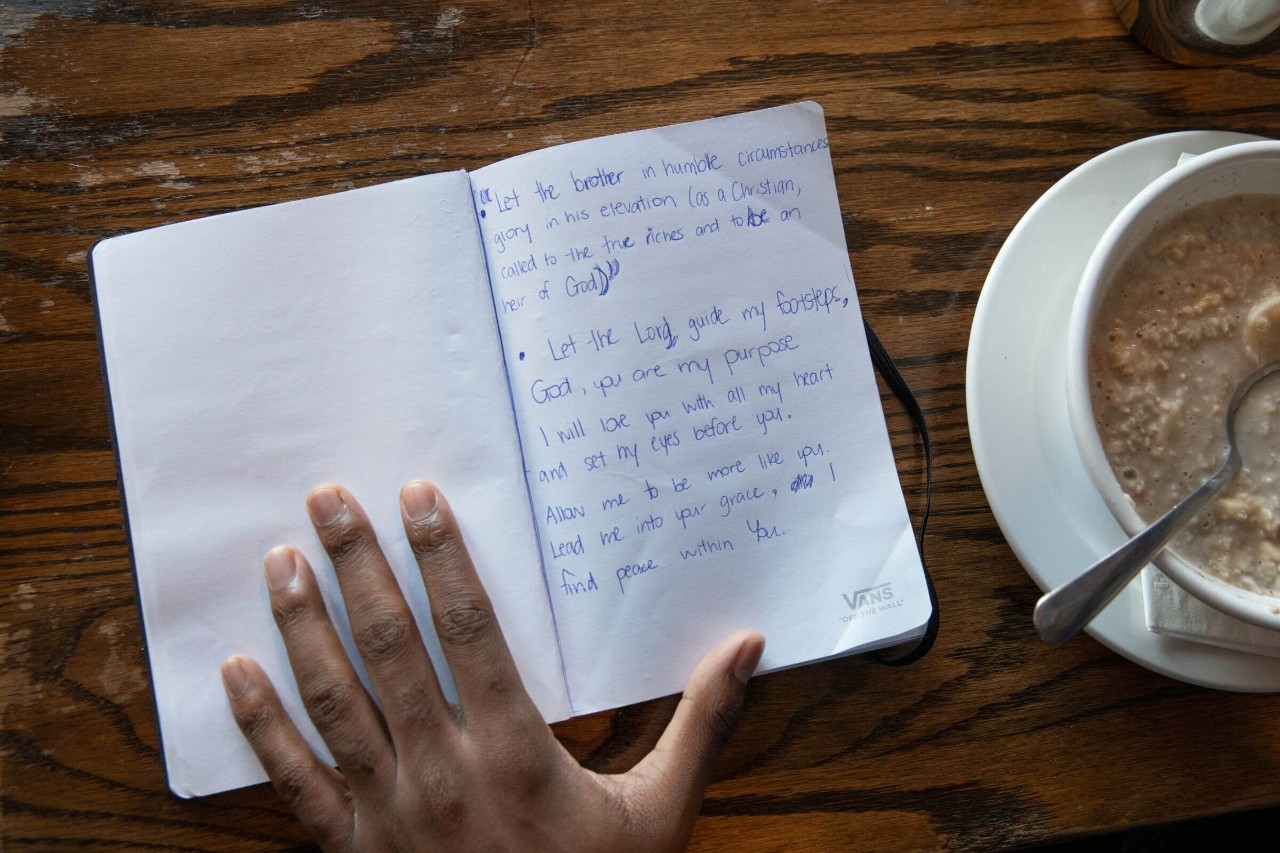 "• Let the brother in humble circumstances
glory in his elevation (as a Christian,
called to the true riches and to be an
heir of God)"
• Let the Lord, guide my footsteps,
God, you are my purpose
I will love you with all my heart
and set my eyes before you.
Allow me to be more like you.
Lead me into your grace, I
find peace within You.
VANS
"OFF THE WALL"